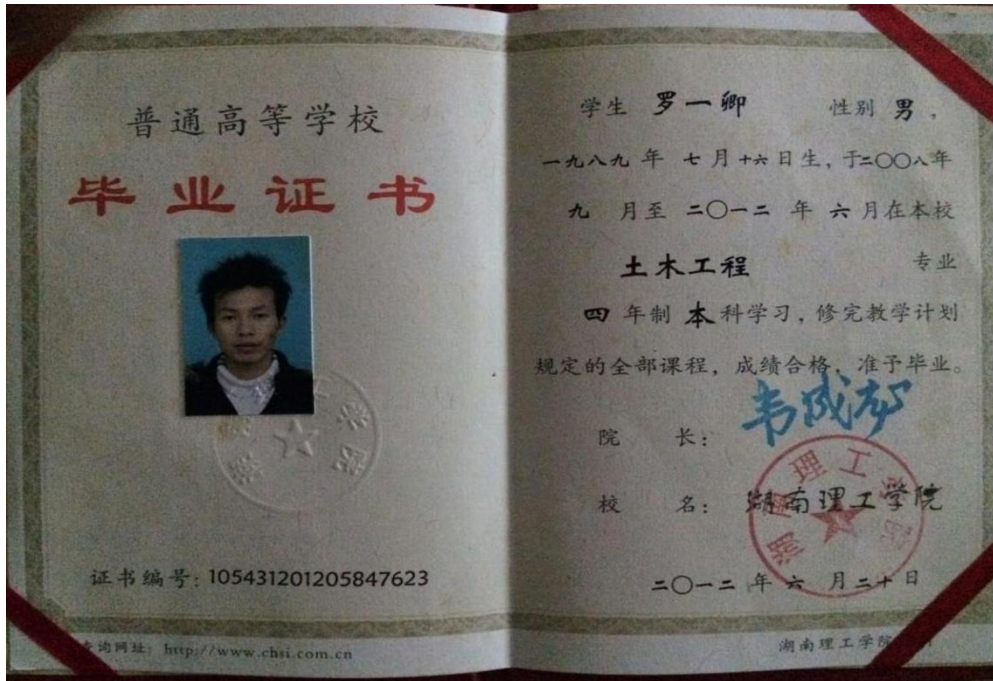 普通高等学校
毕业证书
证书编号：105431201205847623
查询网址：http://www.chsi.com.cn
学生 罗一卿 性别 男，
一九八九年 七月十六日生，于二〇〇八年
九 月至 二〇一二 年 六月在本校
土木工程 专业
四 年制 本科学习，修完教学计划
规定的全部课程，成绩合格，准予毕业。
院 长：
校 名：湖南理工学院
湖南理工学院
二〇一二 年 六 月二十日
湖南理工学院